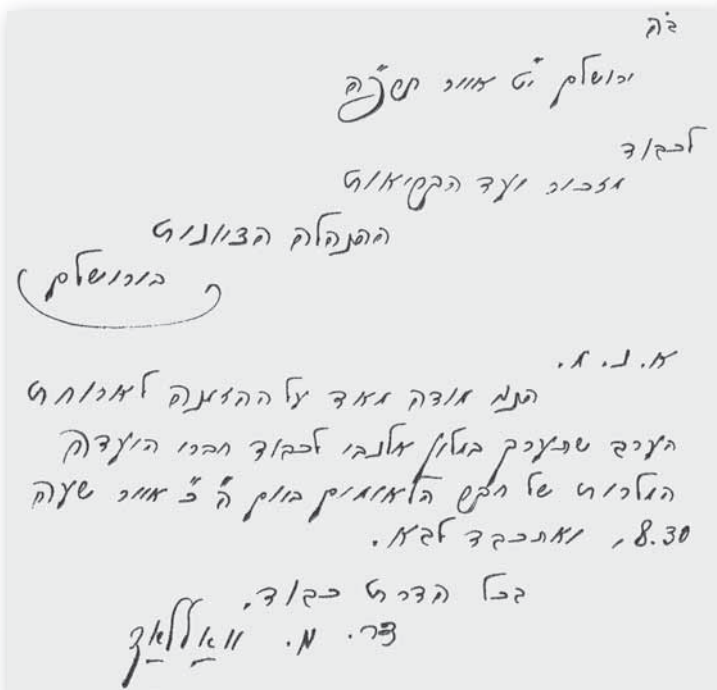 ב"ה
ירושלם י"ט אייר תרפ"ה
לכבוד
מזכיר ועד הבריאות
ההנהלה הציונית
בירושלם
א.נ.מ.
הח"מ מודה מאד על ההזמנה לארוחת
הערב שתערך במלון אלנבי לכבוד חברי הועדה
המלרית של חבר הלאומים ביום ה' כ' אייר שעה
8.30, ואתכבד לבא.
בכל הדרת כבוד,
דר. מ. וואללאך